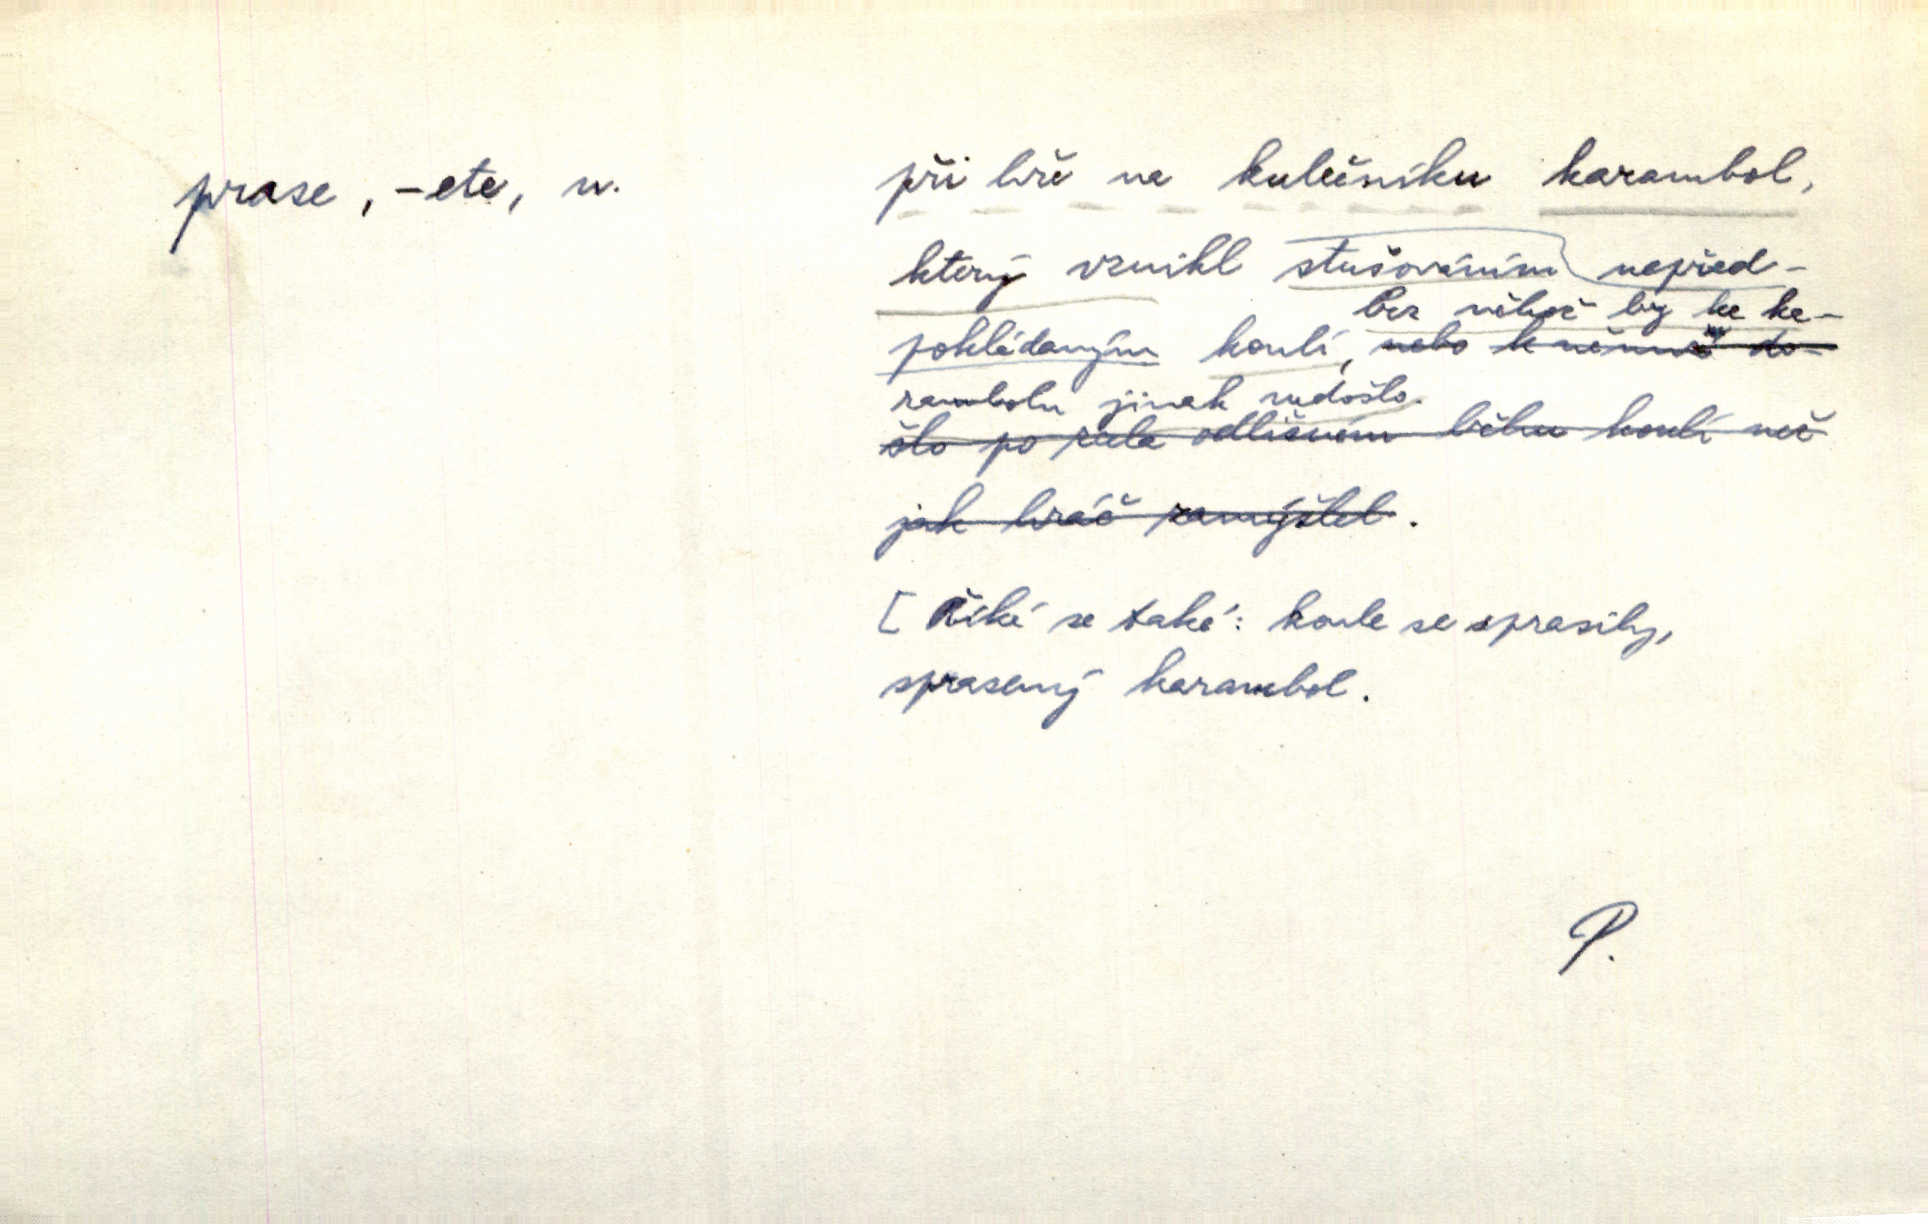 prase, -ete, n.
při hře na kulečníku karambol,
který vznikl stušováním nepřed-
bez něhož by ke ka-
pokládaným koulí, nebo k němuž do-
rambolu jinak nedošlo.
šlo po zcela odlišném běhu koulí než
jak hráč zamýšlel.
[Říká se také: koule se sprasily,
sprasený karambol.
P.